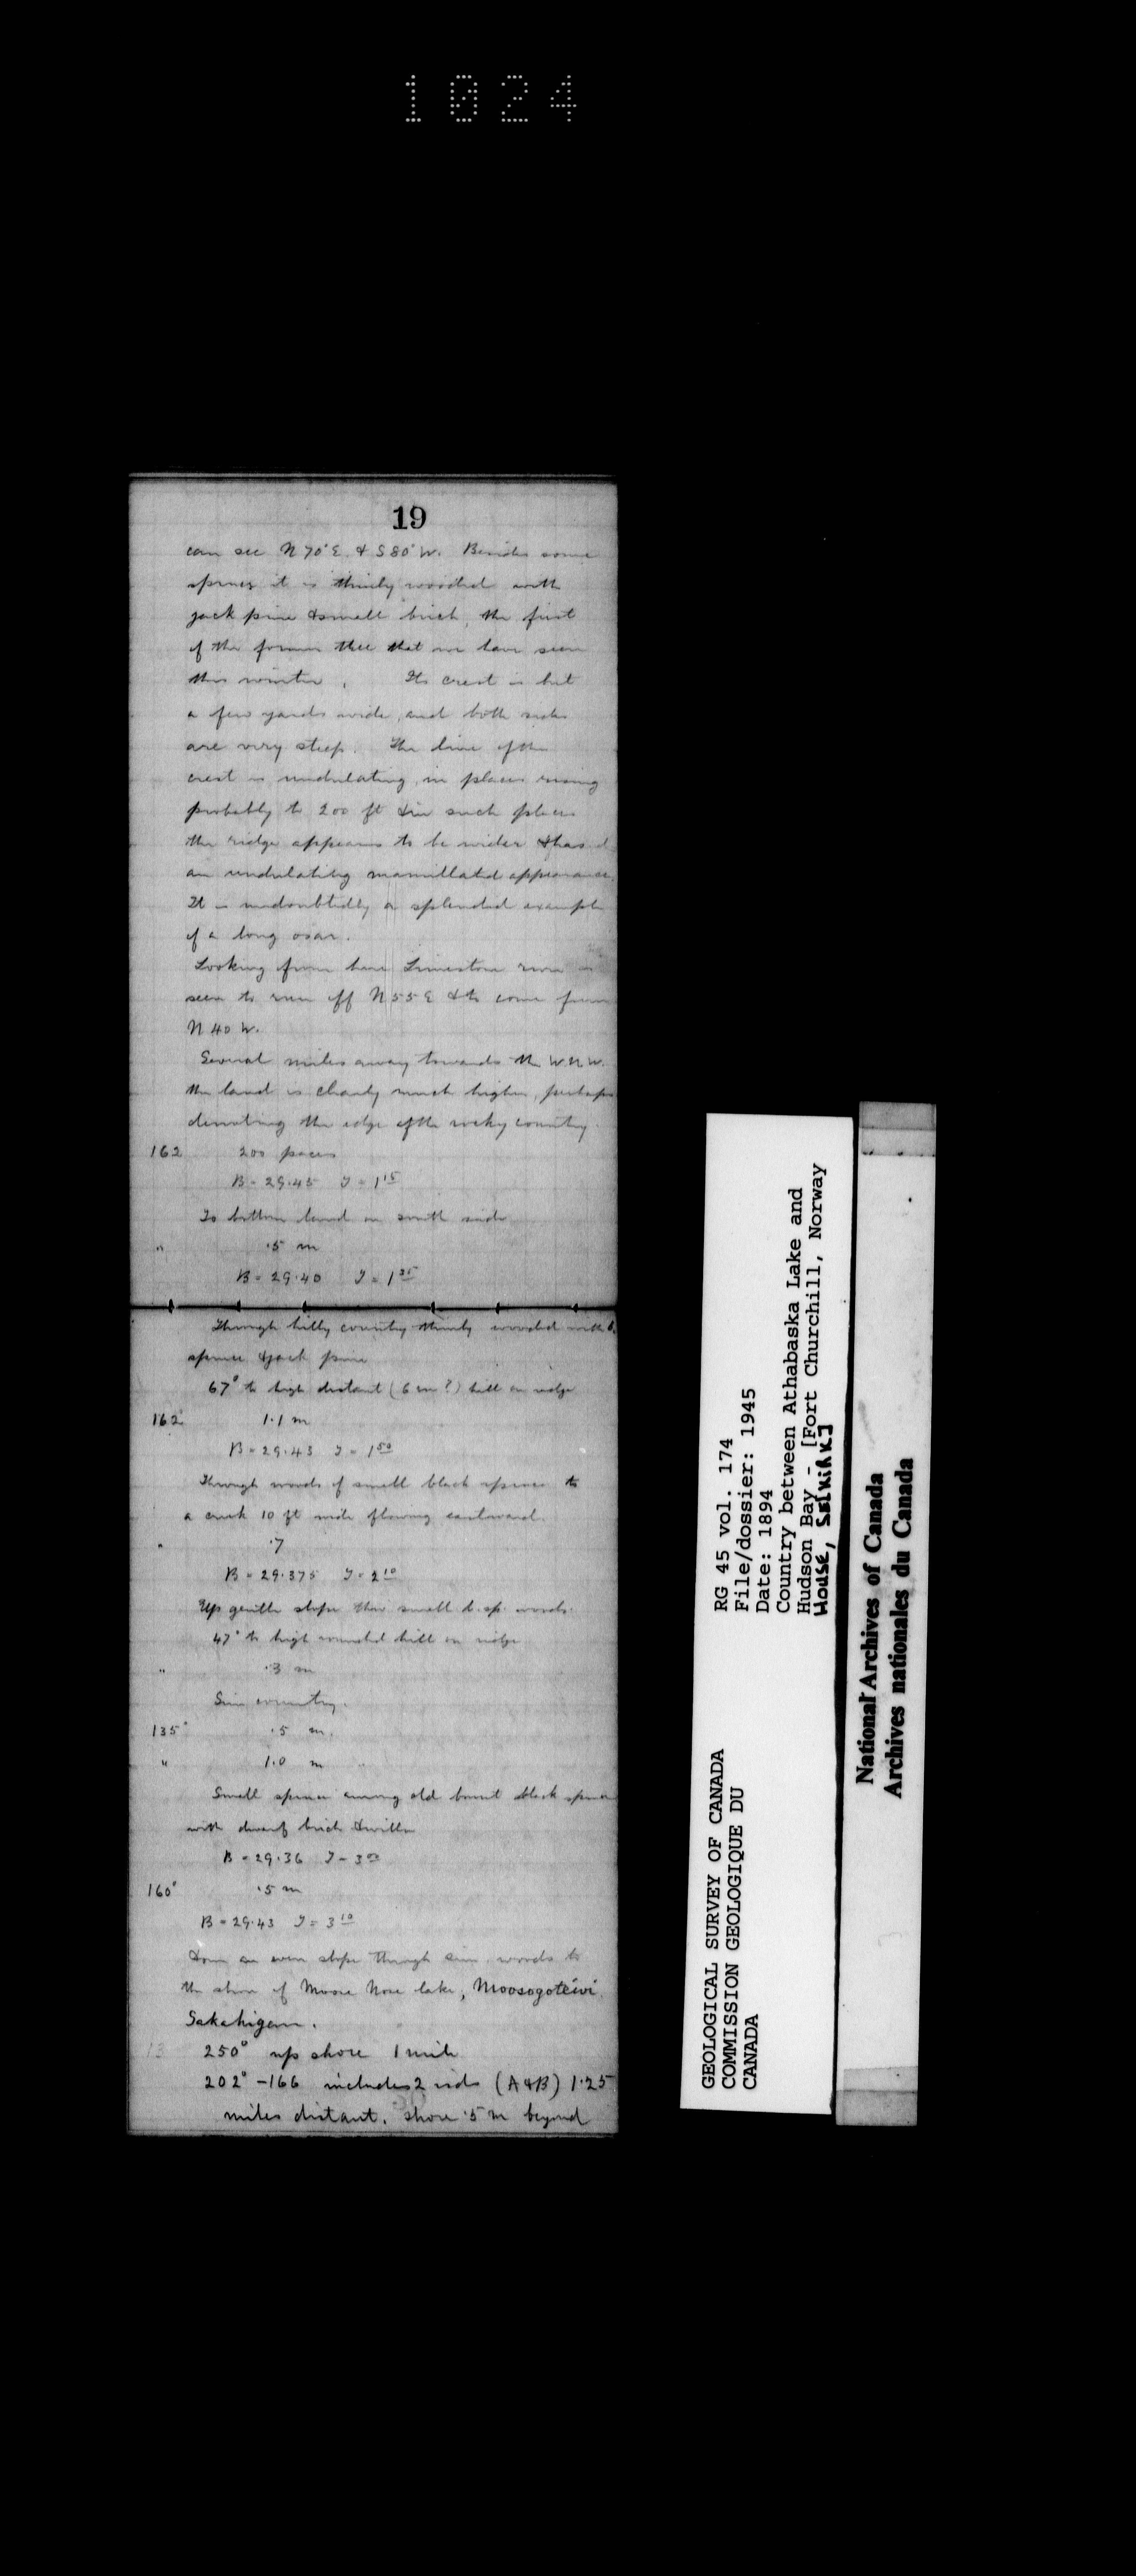 1024
19
can see N 70° E & S 80° W. Besides some
spruce it is thinly wooded with
jack pine & small birch, the first
of the former that we have seen
this winter. Its crest is but
a few yards wide, and both sides
are very steep. The line of the
crest is undulating, in places rising
probably to 200 ft & in such places
the ridge appears to be wider & has
an undulating mamillated appearance.
It is undoubtedly a splendid example
of a long osar.
Looking from here Limestone river is
seen to run off N 55 E & to come from
N 40 W.
Several miles away towards the W.N.W.
the land is clearly much higher, perhaps
denoting the edge of the rocky country.
162 200 paces
B = 29.45 T = 1 15
To bottom land on south side
" .5 m
B = 29.40 T = 1 35
Through hilly country thinly wooded with b.
spruce & jack pine
67° to high distant (6 m?) hill on ridge
162° 1.1 m
B = 29.43 T = 1 50
Through woods of small black spruce to
a creek 10 ft wide flowing eastward.
" .7
B = 29.375 T = 2 10
Up gentle slope thro small b. sp. woods.
47° to high rounded hill on ridge
" .3 m
Sim country.
135° .5 m.
" 1.0 m
Small spruce among old burnt black spruce
with dwarf birch & willow
B = 29.36 T = 3 00
160° .5 m
B = 29.43 T = 3 10
Down an even slope through sim. woods to
the shore of Moose Nose lake, Moosogotéwi
Sakahigan.
13 250° up shore 1 mile
202° - 166 includes 2 isds (A & B) 1.25
miles distant. shore .5 m beyond
GEOLOGICAL SURVEY OF CANADA
COMMISSION GEOLOGIQUE DU
CANADA
RG 45 vol. 174
File/dossier: 1945
Date: 1894
Country between Athabaska Lake and
Hudson Bay - [Fort Churchill, Norway
House, SELKIRK]
National Archives of Canada
Archives nationales du Canada